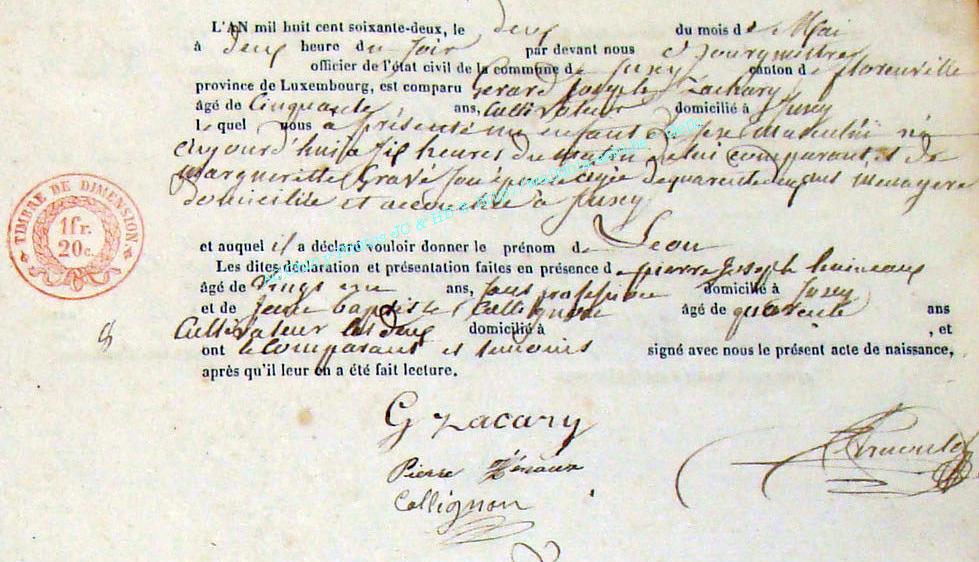 L'AN mil huit cent soixante-deux, le deux du mois de Mai
à deux heure du soir par devant nous Bourgmestre
officier de l'état civil de la commune de Jusey canton de florenville
province de Luxembourg, est comparu Gerard Joseph Zachary
âgé de Cinquante ans, Cultivateur domicilié à Jusey
le quel nous a présenté un enfant du sexe masculin né
aujourd'huis a six heures du matin de lui comparant, et de
margueritte Gravé son épouse agée de quarente ans menagere
domiciliée et accouchée a Jusey
et auquel il a déclaré vouloir donner le prénom de Leon
Les dites déclaration et présentation faites en présence de pierre Joseph
âgé de vingt ans, sans profession domicilié à Jusey
et de Jean baptiste Collignon âgé de quarente ans
Cultivateur les deux domicilié à , et
ont le comparant et temoins signé avec nous le présent acte de naissance,
après qu'il leur en a été fait lecture.
TIMBRE DE DIMENSION
1 fr.
20 c.
8
G Zacary
Pierre
Collignon